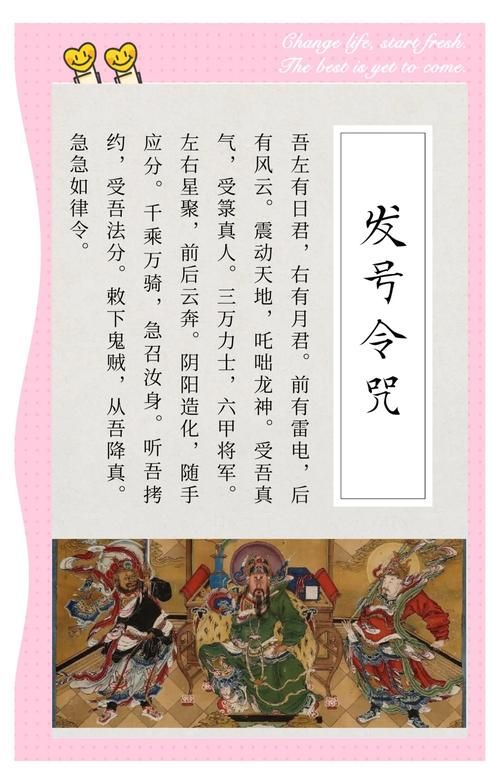 Change life, start fresh.
The best is yet to come.
发号令咒
吾左有日君，右有月君。前有雷电，后
有风云。震动天地，吒咄龙神。受吾真
气，受箓真人。三万力士，六甲将军。
左右星聚，前后云奔。阴阳造化，随手
应分。千乘万骑，急召汝身。听吾拷
约，受吾法分。敕下鬼贼，从吾降真。
急急如律令。